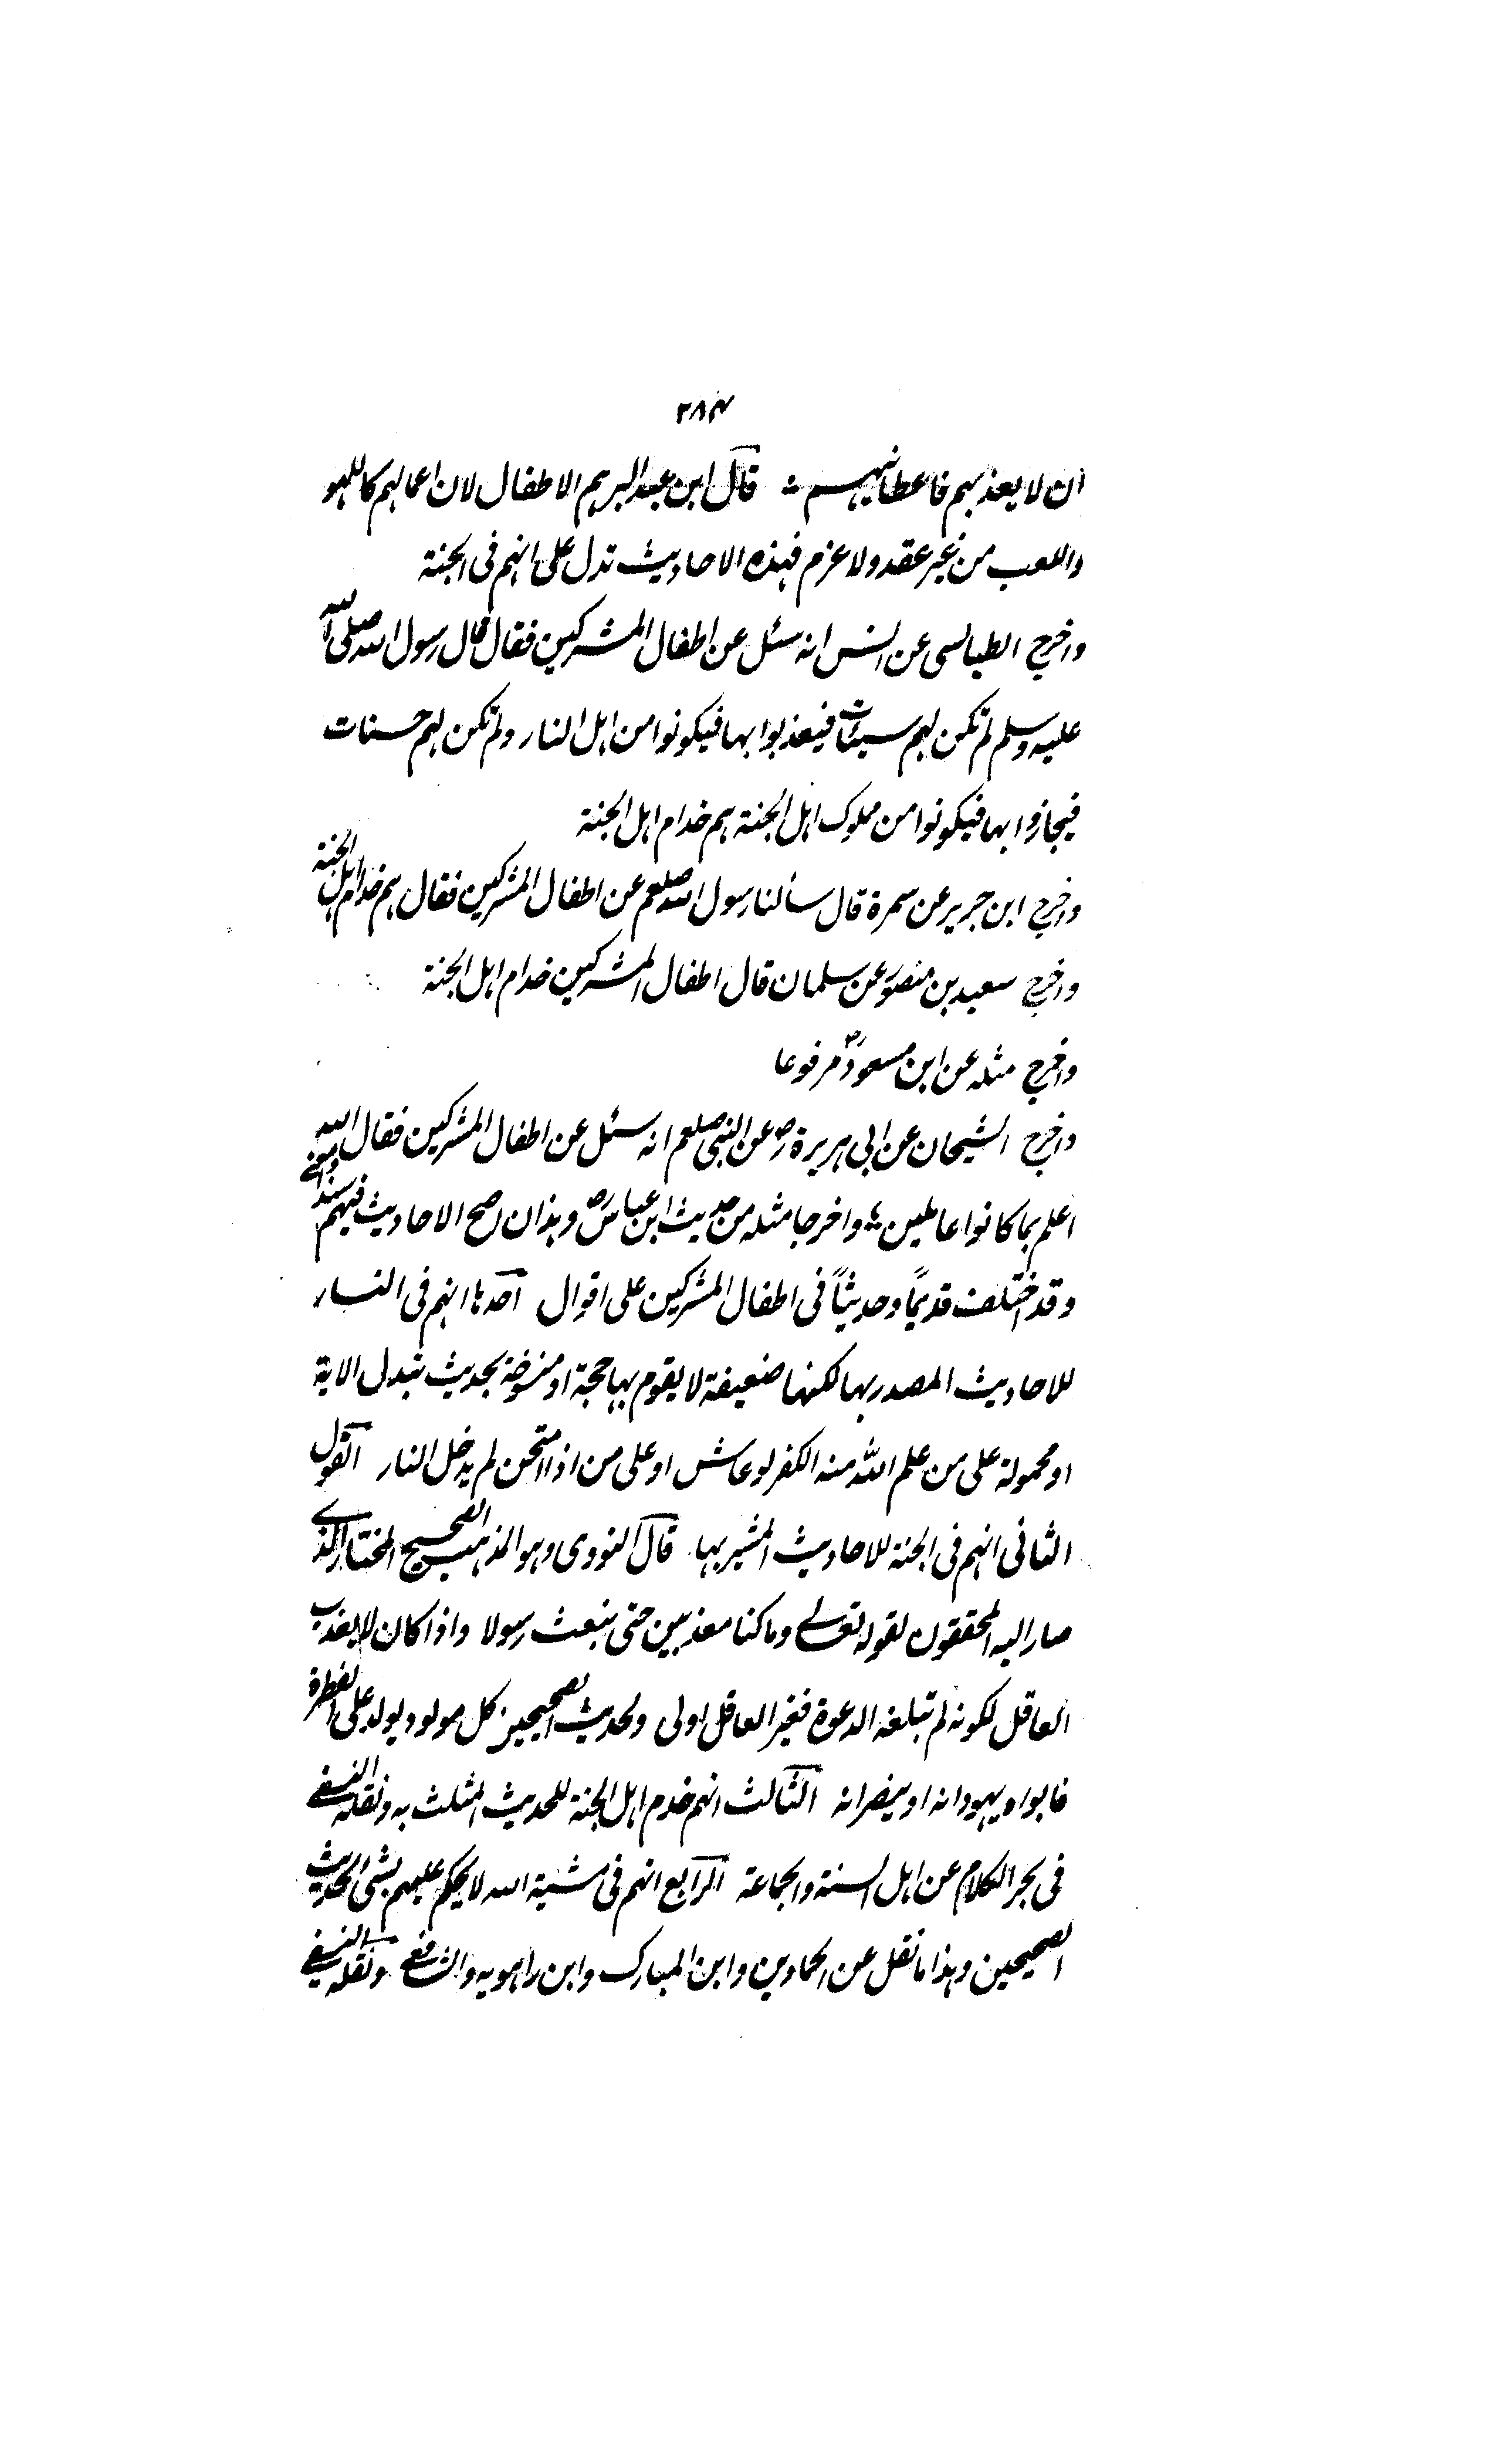 ۲۸۴
ان لا يعذبهم فاعطانيهم ؞ قال ابن عبد البر هم الاطفال لان اعمالهم كاللهو
واللعب من غير عقد ولا عزم فهذه الاحاديث تدل على انهم فى الجنة
واخرج الطيالسى عن انس انه سئل عن اطفال المشركين فقال قال رسول الله صلى الله
عليه وسلم لم تكن لهم سيئات فيعذبوا بها فيكونوا من اهل النار ولم تكن لهم حسنات
فيجازوا بها فيكونوا من ملوك اهل الجنة هم خدام اهل الجنة
واخرج ابن جرير عن سمرة قال سألنا رسول الله صلعم عن اطفال المشركين فقال هم خدام اهل الجنة
واخرج سعيد بن منصور عن سلمان قال اطفال المشركين خدام اهل الجنة
واخرج مثله عن ابن مسعودؓ مرفوعا
واخرج الشيخان عن ابى هريرة رض عن النبى صلعم انه سئل عن اطفال المشركين فقال الله
اعلم بما كانوا عاملين ؛؛ واخرجا مثله من حديث ابن عباس رض وهذان اصح الاحاديث فيهم سندا
وقد اختلف قديمًا وحديثاً فى اطفال المشركين على اقوال احدها انهم فى النار
للاحاديث المصدر بها لكنها ضعيفة لا يقوم بها حجة او منسوخة بحديث تبدل الاية
او محمولة على من علم الله منه الكفر لو عاش او على من اذا امتحن لم يدخل النار القول
الثانى انهم فى الجنة للاحاديث المشير بها قال النووى وهو المذهب الصحيح المختار الذى
صار اليه المحققون لقوله تعالى وما كنا معذبين حتى نبعث رسولا واذا كان لا يعذب
العاقل لكونه لم تبلغه الدعوة فغير العاقل اولى ولحديث الصحيحين كل مولود يولد على الفطرة
فابواه يهودانه او ينصرانه الثالث انهم خدم اهل الجنة للحديث المثلث به ونقله النسفى
فى بحر الكلام عن اهل السنة والجماعة الرابع انهم فى مشية الله لا يحكم عليهم بشئ لحديث
الصحيحين وهذا ما نقل عن الحمادين وابن المبارك وابن راهويه والشافعى ونقله النسفى